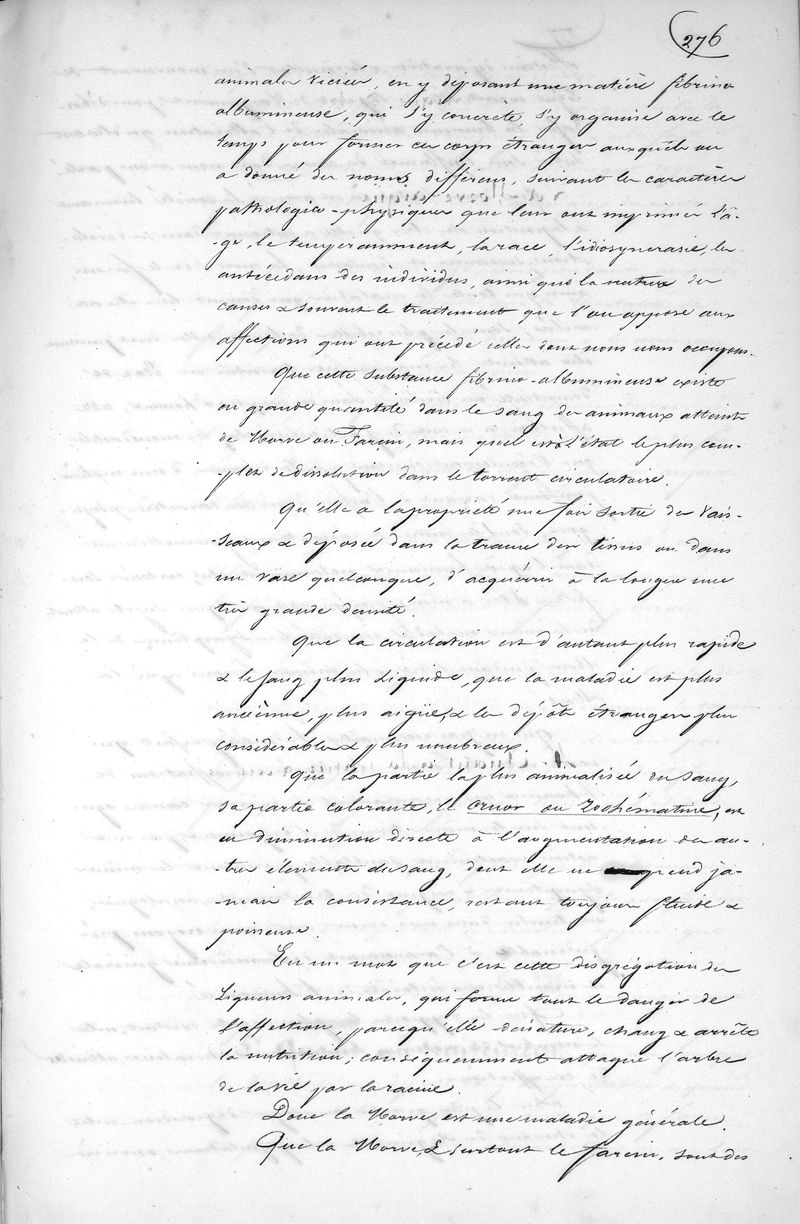 276
animales viciées, en y déposant une matière fibrino
albumineuse, qui s'y concrète, s'y organise avec le
temps pour former ces corps étrangers auxquels on
a donné des noms différens, suivant les caractères
pathologico-physiques que leur ont imprimés l'â-
-ge, le tempéramment, la race, l'idiosyncrasie, les
antécédans des individus, ainsi que la nature des
causes & souvent le traitement que l'on oppose aux
affections qui ont précédé celles dont nous nous occupons.
Que cette substance fibrino-albumineuse existe
en grande quantité dans le sang des animaux atteints
de Morve ou Farcin, mais qu'elle est à l'état le plus com-
-plet de dissolution dans le torrent circulatoire.
Qu'elle a la propriété une fois sortie des vais-
-seaux & déposée dans la trame des tissus ou dans
un vase quelconque, d'acquérir à la longue une
très grande densité.
Que la circulation est d'autant plus rapide
& le sang plus liquide, que la maladie est plus
ancienne, plus aigüe, & les dépôts étrangers plus
considérables & plus nombreux.
Que la partie la plus animalisée du sang,
sa partie colorante, le cruor ou Zoohématine, est
en diminution directe à l'augmentation des au-
-tres élémens du sang, dont elle ne prend ja-
-mais la consistance, restant toujours fluide &
poisseuse.
En un mot que c'est cette disgrégation des
liqueurs animales, qui forme tout le danger de
l'affection, parcequ'elle dénature, change & arrête
la nutrition; conséquemment attaque l'arbre
de la vie par la racine.
Donc la Morve est une maladie générale.
Que la Morve, & surtout le farcin, sont des